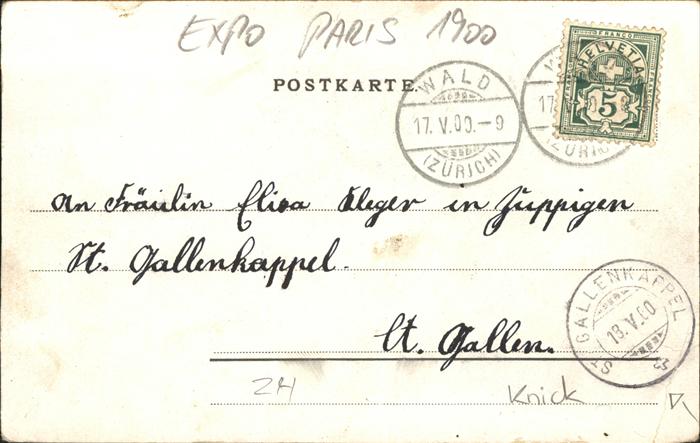 EXPO PARIS 1900
POSTKARTE.
WALD
17. V. 00. – 9
(ZÜRICH)
17
(ZÜRICH)
FRANCO
HELVETIA
5
An Fräulein Elisa Kleger in Juppigen
St. Gallenkappel.
Ct. Gallen.
ST. GALLENKAPPEL
18. V. 00
ZH
Knick